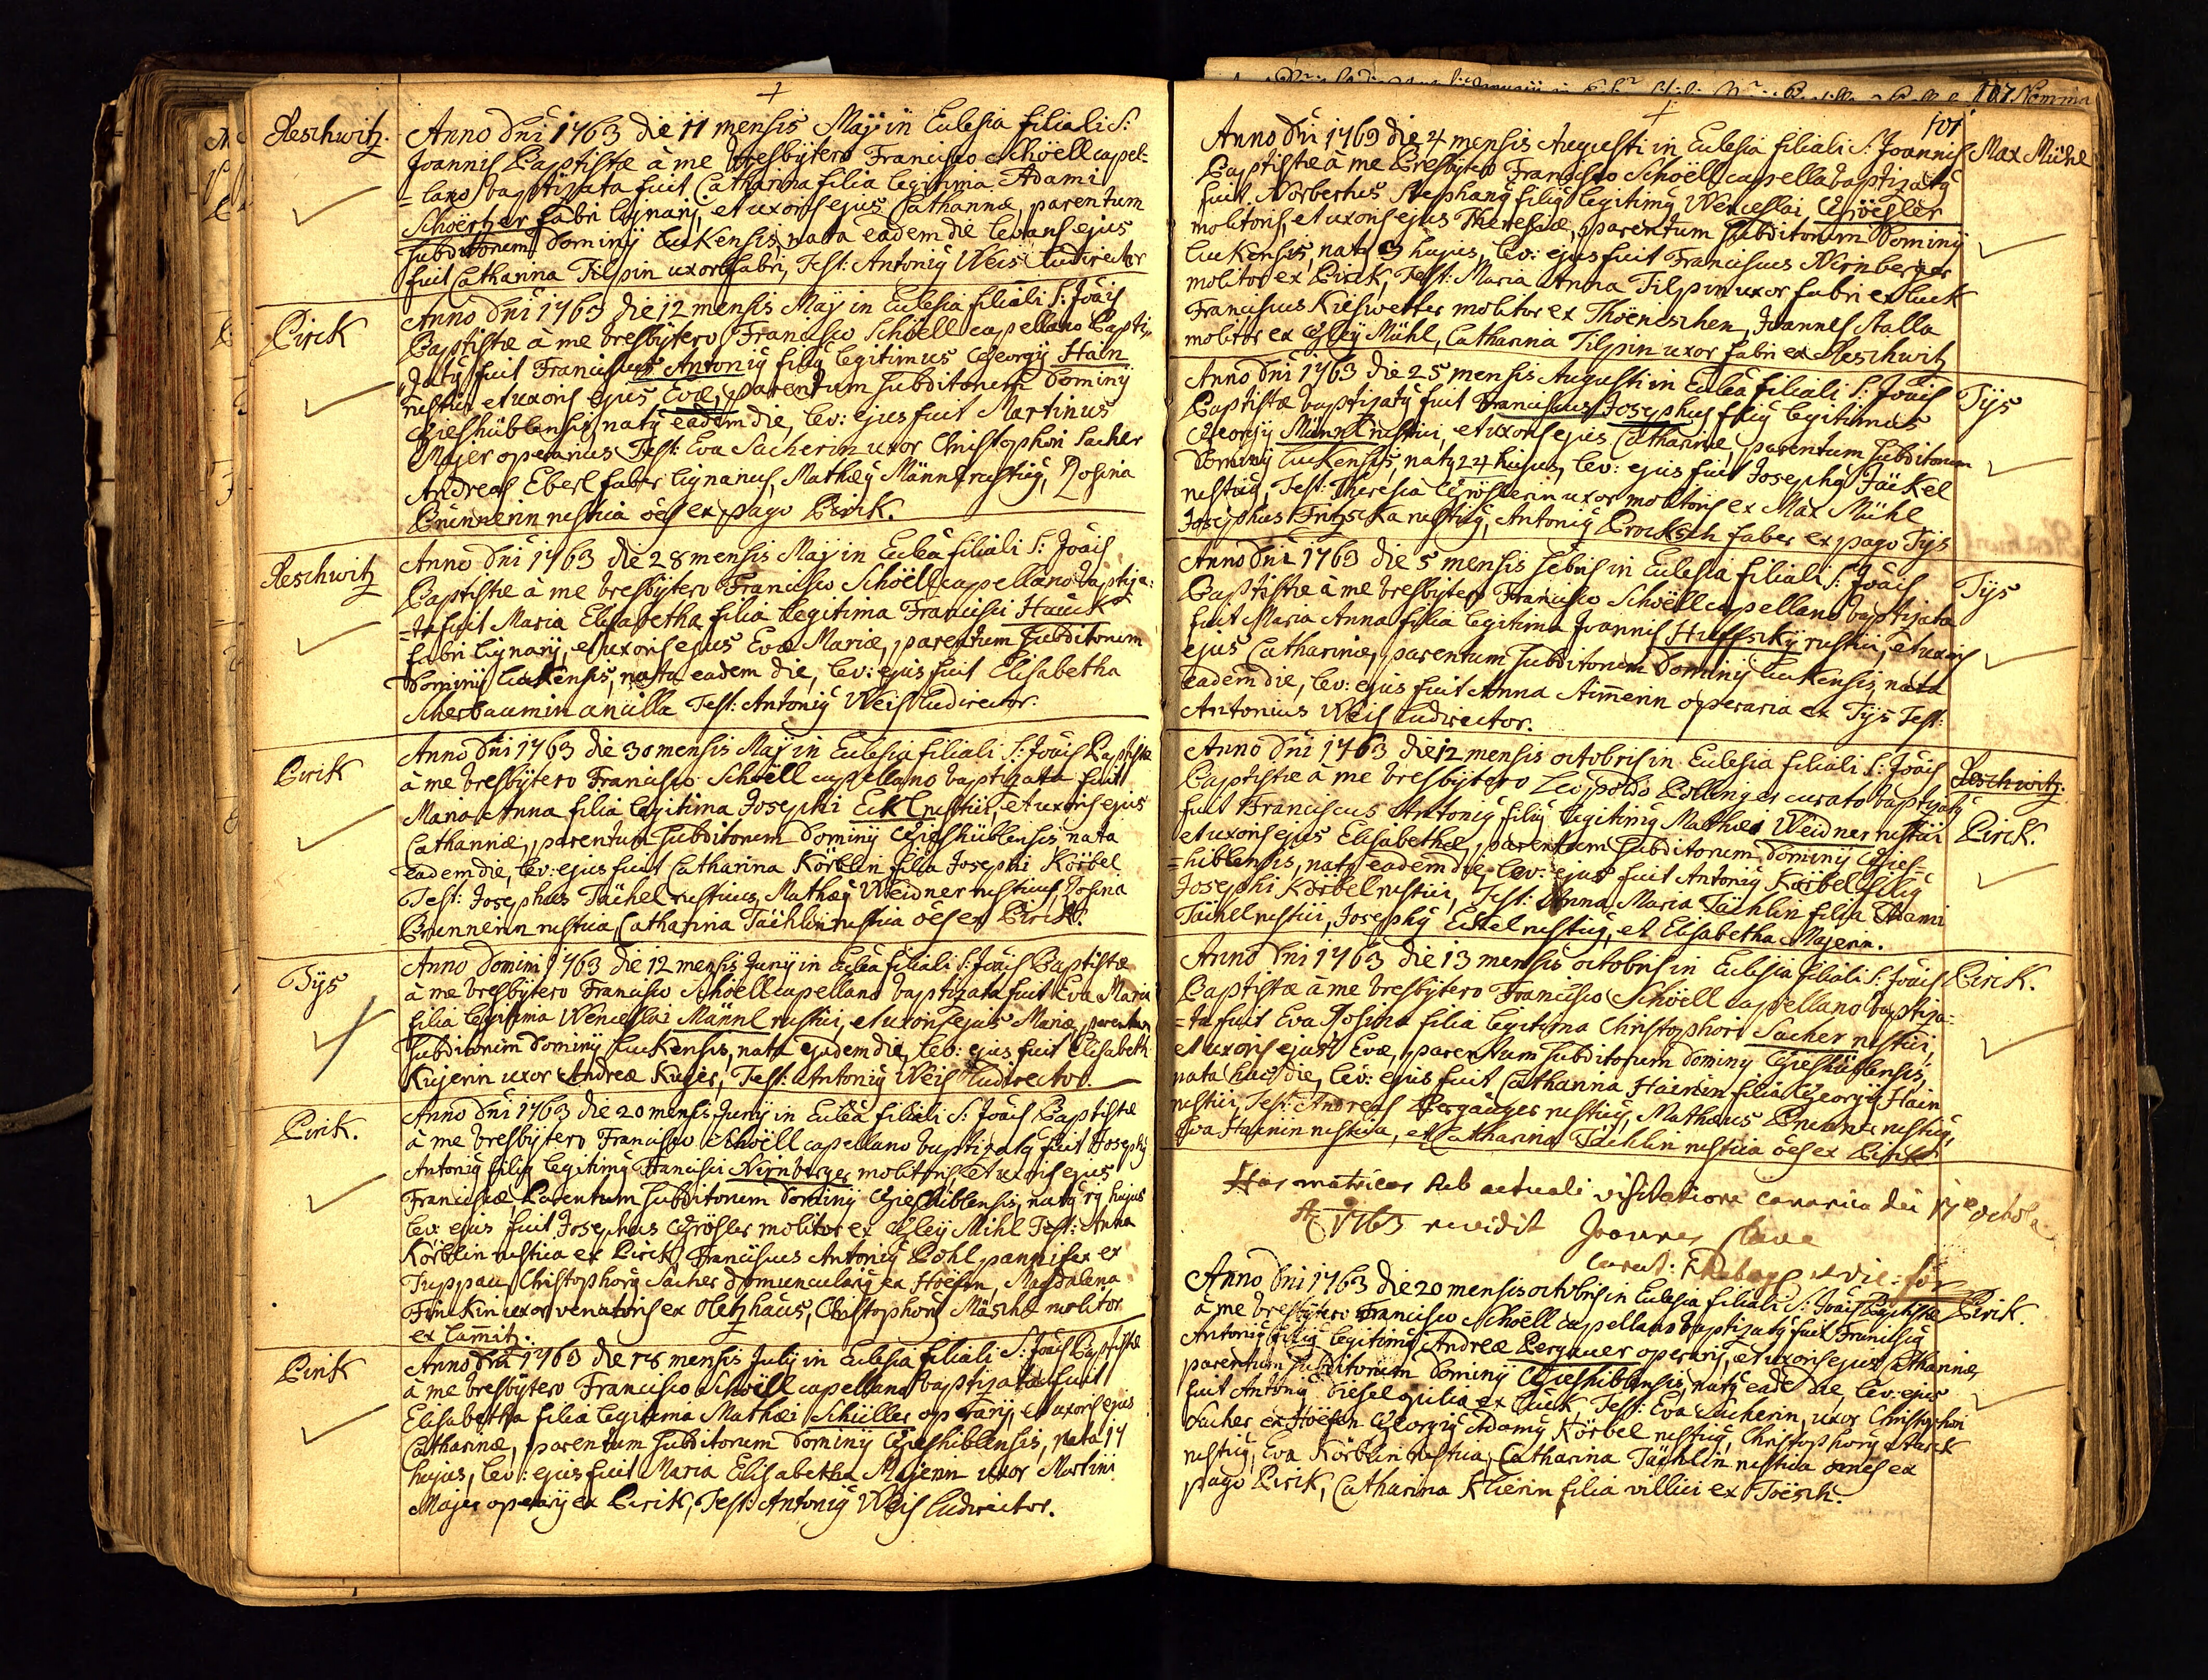 Reschwitz.
Anno Dni 1763 die 11 mensis Maÿ in Eclesia filiali S:
Joannis Baptistæ à me Presbÿtero Francisco Schöell capel=
=lano baptizata fuit Catharina filia legitima Adami
Schöerher fabri lignarÿ, et uxoris ejus Catharinæ, parentum
subditorum Dominÿ Luckensis, nata eadem die levans ejus
fuit Catharina Tilpin uxor fabri, Test: Antonig Weis Ludirector
Pirck
Anno Dni 1763 die 12 mensis Maÿ in Eclesia filiali S: Jöais
Baptistæ à me Presbÿtero Francisco Schöell capellano bapti=
zatg fuit Franciscus Antonig filig legitimus Georgÿ Hain
rustici et uxoris ejus Evæ, parentum subditorum Dominÿ
Gieshüblensis, natg eadem die, lev: ejus fuit Martinus
Majer operarius Test: Eva Sacherin uxor Christophori Sacher
Andreas Eberl faber lignarius, Mathæg Männl rusticg, Rosina
Brunnerin rustica öes ex pago Pirck.
Reschwitz
Anno Dni 1763 die 28 mensis Maÿ in Eclea filiali S: Jöais
Baptistæ à me Presbÿtero Francisco Schöell capellano baptiza=
=ta fuit Maria Elisabetha filia legitima Francisci Hauck
fabri lignarÿ, et uxoris ejus Evæ Mariæ, parentum subditorum
Dominÿ Luckensis, nata eadem die, lev: ejus fuit Elisabetha
Scherbaumin ancilla Test: Antonig Weis Ludirector.
Pirck
Anno Dni 1763 die 30 mensis Maÿ in Eclesia filiali S: Jöais Baptistæ
à me Presbÿtero Francisco Schöell capellano baptizata fuit
Maria Anna filia legitima Josephi Eckl rustici, et uxoris ejus
Catharinæ, parentum subditorum Dominÿ Gieshüblensis nata
eadem die, lev: ejus fuit Catharina Körblin filia Josephi Körbel
Test: Josephus Tächel rusticus, Mathæg Weidner rusticus, Rosina
Brunnerin rustica, Catharina Tächlin rustica öes ex Pirck.
Tÿs
Anno Domini 1763 die 12 mensis Junÿ in Eclea filiali S: Jöais Baptistæ
à me Presbÿtero Francisco Schöell capellano baptizata fuit Eva Maria
filia legitima Wenceslai Männl rustici, et uxoris ejus Mariæ, parentum
subditorum Dominÿ Luckensis, nata ejadem die, lev: ejus fuit Elisabeth
Kugerin uxor Andreæ Kuger, Test: Antonig Weis Ludirector.
Pirck.
Anno Dni 1763 die 20 mensis Junÿ in Eclea filiali S: Jöais Baptistæ
à me Presbÿtero Francisco Schöell capellano baptizatg fuit Josephg
Antonig filig legitimg Francisci Nirnberger molitoris, et uxoris ejus
Franciscæ, Parentum subditorum Dominÿ Gieshiblensis, natg 19 hujus
lev: ejus fuit Josephus Grösles molitor ex Gleÿ Mihl Test: Anna
Körblin rustica ex Pirck, Franciscus Antonig Pohl pannifex ex
Tuppau, Christophorg Sacher domuncularg ex Höefen, Magdalena
Finckin uxor venatoris ex Oletzhaus, Christophorg Mäschl molitor
ex Lamitz.
Pirck
Anno Dni 1763 die 18 mensis Julÿ in Eclesia filiali S: Jöais Baptistæ
à me Presbÿtero Francisco Schöell capellano baptizata fuit
Elisabetha filia legitima Mathæi Schüller operarÿ, et uxoris ejus
Catharinæ, parentum subditorum Dominÿ Gieshiblensis, nata 17
hujus, lev: ejus fuit Maria Elisabetha Majerin uxor Martini
Majer operarÿ ex Pirck, Test: Antonig Weis Ludirector.
107 Nomina
101
Max Mühl
Anno Dni 1763 die 4 mensis Augusti in Eclesia filiali S: Joannis
Baptistæ à me Presbÿtero Francisco Schöell capella baptizatg
fuit Norbertus Stephang filig legitimg Wenceslai Gröesler
molitoris, et uxoris ejus Theresiæ, parentum subditorum Dominÿ
Luckensis, natg 3 hujus, lev: ejus fuit Franciscus Nirnberger
molitor ex Pirck, Test: Maria Anna Tilpin uxor fabri ex Luck
Franciscus Kieswetter molitor ex Thöeneschen, Joannes Stalla
molitor ex Gleÿ Mühl, Catharina Tilpin uxor fabri ex Reschwitz
Tÿs
Anno Dni 1763 die 25 mensis Augusti in Eclea filiali S: Jöais
Baptistæ baptizatg fuit Franciscus Josephus filig legitimus
Georgÿ Männl rustici, et uxoris ejus Catharinæ, parentum subditorum
Dominÿ Luckensis, natg 24 hujus, lev: ejus fuit Josephg Jäckel
rusticg, Test: Theresia Gröslerin uxor molitoris ex Max Mühl
Josephus Fritzscka rusticg, Antonig Procksch faber ex pago Tÿs
Tÿs
Anno Dni 1763 die 5 mensis 7ebris in Eclesia filiali S: Jöais
Baptistæ à me Presbÿtero Francisco Schöell capellano baptizata
fuit Maria Anna filia legitima Joannis Huffskÿ rustici, et uxoris
ejus Catharinæ, parentum subditorum Dominÿ Luckensis, nata
eadem die, lev: ejus fuit Anna Aimerin operaria ex Tÿs Test:
Antonius Weis Ludirector.
Reschwitz.
Pirck.
Anno Dni 1763 die 12 mensis octobris in Eclesia filiali S: Jöais
Baptistæ à me Presbÿtero Leopoldo Bollinger curato baptizatg
fuit Franciscus Antonig filig legitimg Mathæi Weidner rustici
et uxoris ejus Elisabethæ, parentum subditorum Dominÿ Gies=
=hiblensis, natg eadem die, lev: ejus fuit Antonig Körbel filig
Josephi Körbel rustici, Test: Anna Maria Tächlin filia Adami
Tächel rustici, Josephg Eckel rusticg, et Elisabetha Majerin.
Pirck.
Anno Dni 1763 die 13 mensis octobris in Eclesia filiali S: Jöais
Baptistæ à me Presbÿtero Francisco Schöell capellano baptiza=
=ta fuit Eva Rosina filia legitima Christophori Sacher rustici,
et uxoris ejus Evæ, parentum subditorum Dominÿ Gieshüblensis,
nata hac die, lev: ejus fuit Catharina Hainin filia Georgÿ Hain
rustici, Test: Andreas Pergauger rusticg, Mathæus Brunner rusticg,
Eva Hainin rustica, et Catharina Tächlin rustica öes ex Pirck
Has matricas sub actuali visitatione canonica die 17 octob
A 1763 revidit Joannes
Pirck.
Anno Dni 1763 die 20 mensis octobris in Eclesia filiali S: Jöais Baptistæ
à me Presbÿtero Francisco Schöell capellano baptizatg fuit Franciscg
Antonig filig legitimg Andreæ Pergauer operarÿ, et uxoris ejus Catharinæ,
parentum subditorum Dominÿ Gieshiblensis, natg eadē die, lev: ejus
fuit Antong Diesel ex Luck Test: Eva Sacherin, uxor Christophori
Sacher ex Höefen Georgig Adamg Körbel rusticg, Christophorg Starck
rusticg, Eva Körblin rustica, Catharina Tächlin rustica omnes ex
pago Pirck, Catharina Klierin filia villici ex Töesch.